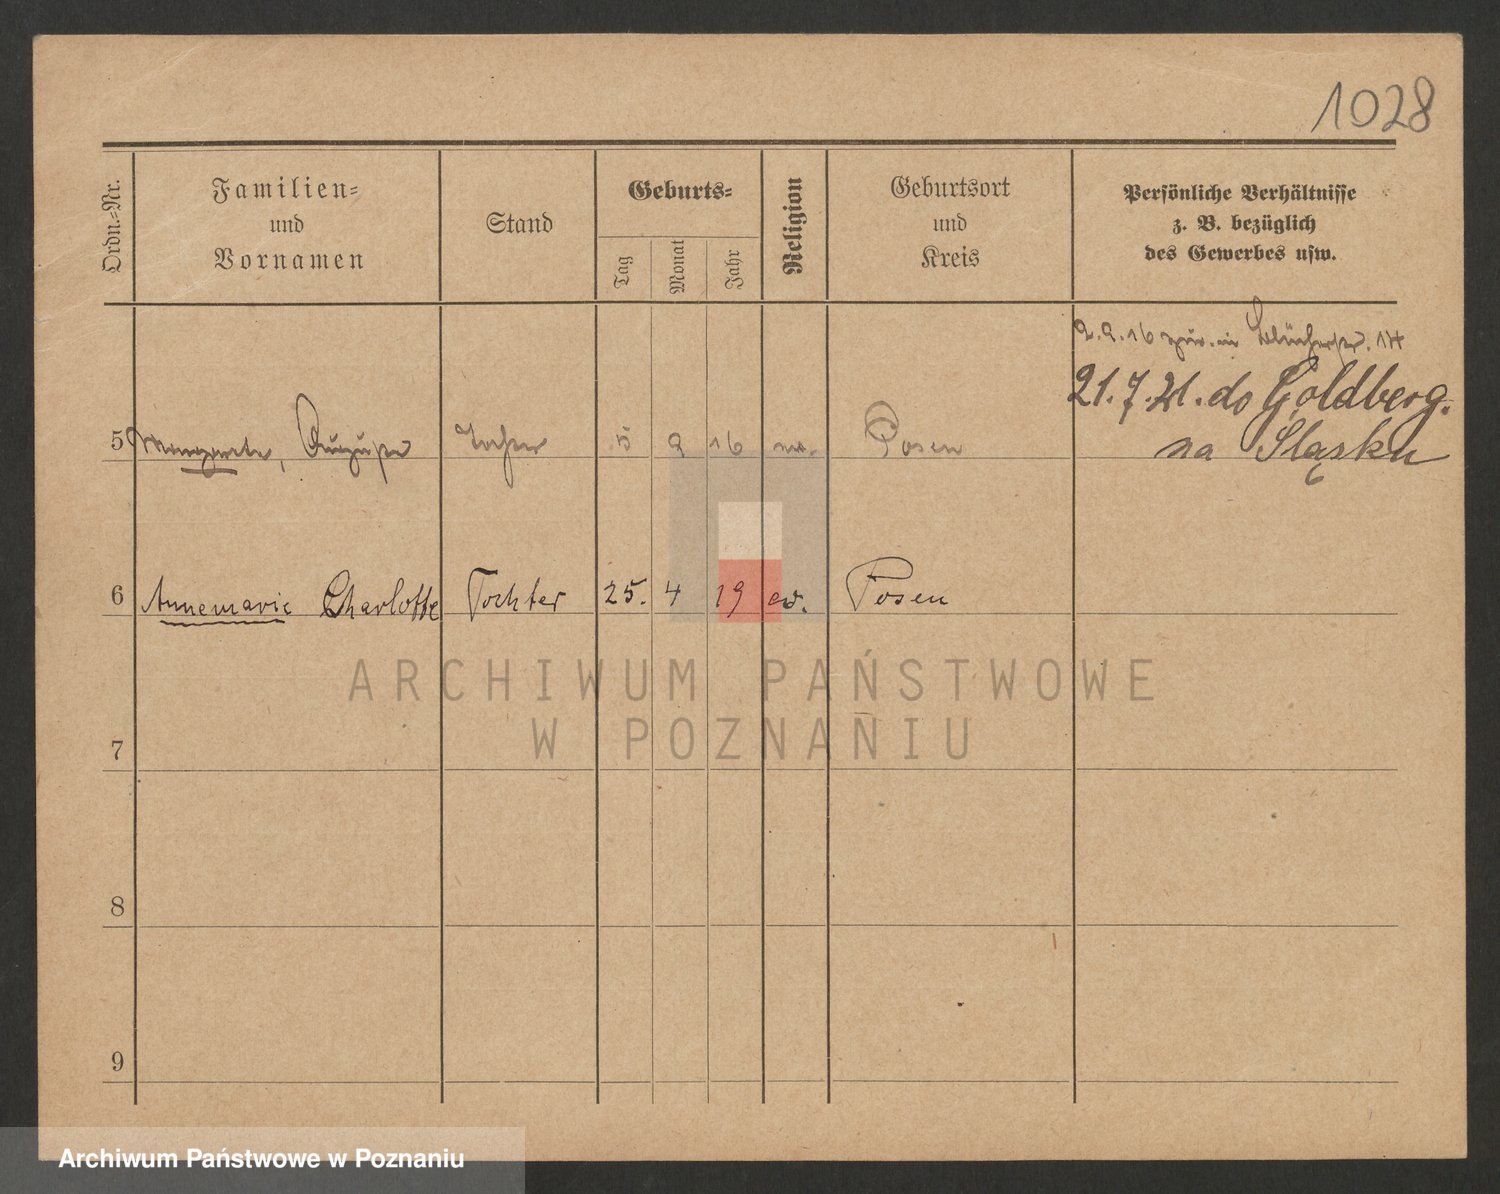 1028
Ordn.-Nr.
Familien-
und
Vornamen
Stand
Geburts-
Tag
Monat
Jahr
Religion
Geburtsort
und
Kreis
Persönliche Verhältnisse
z. B. bezüglich
des Gewerbes usw.
2.9.16 in Blücherstr. 14
21.7.21. do Goldberg.
na Śląsku
5 Margarete, Auguste Tochter 5 9 16 ev. Posen
6 Annemarie Charlotte Tochter 25. 4 19 ev. Posen
ARCHIWUM PAŃSTWOWE
W POZNANIU
7
8
9
Archiwum Państwowe w Poznaniu